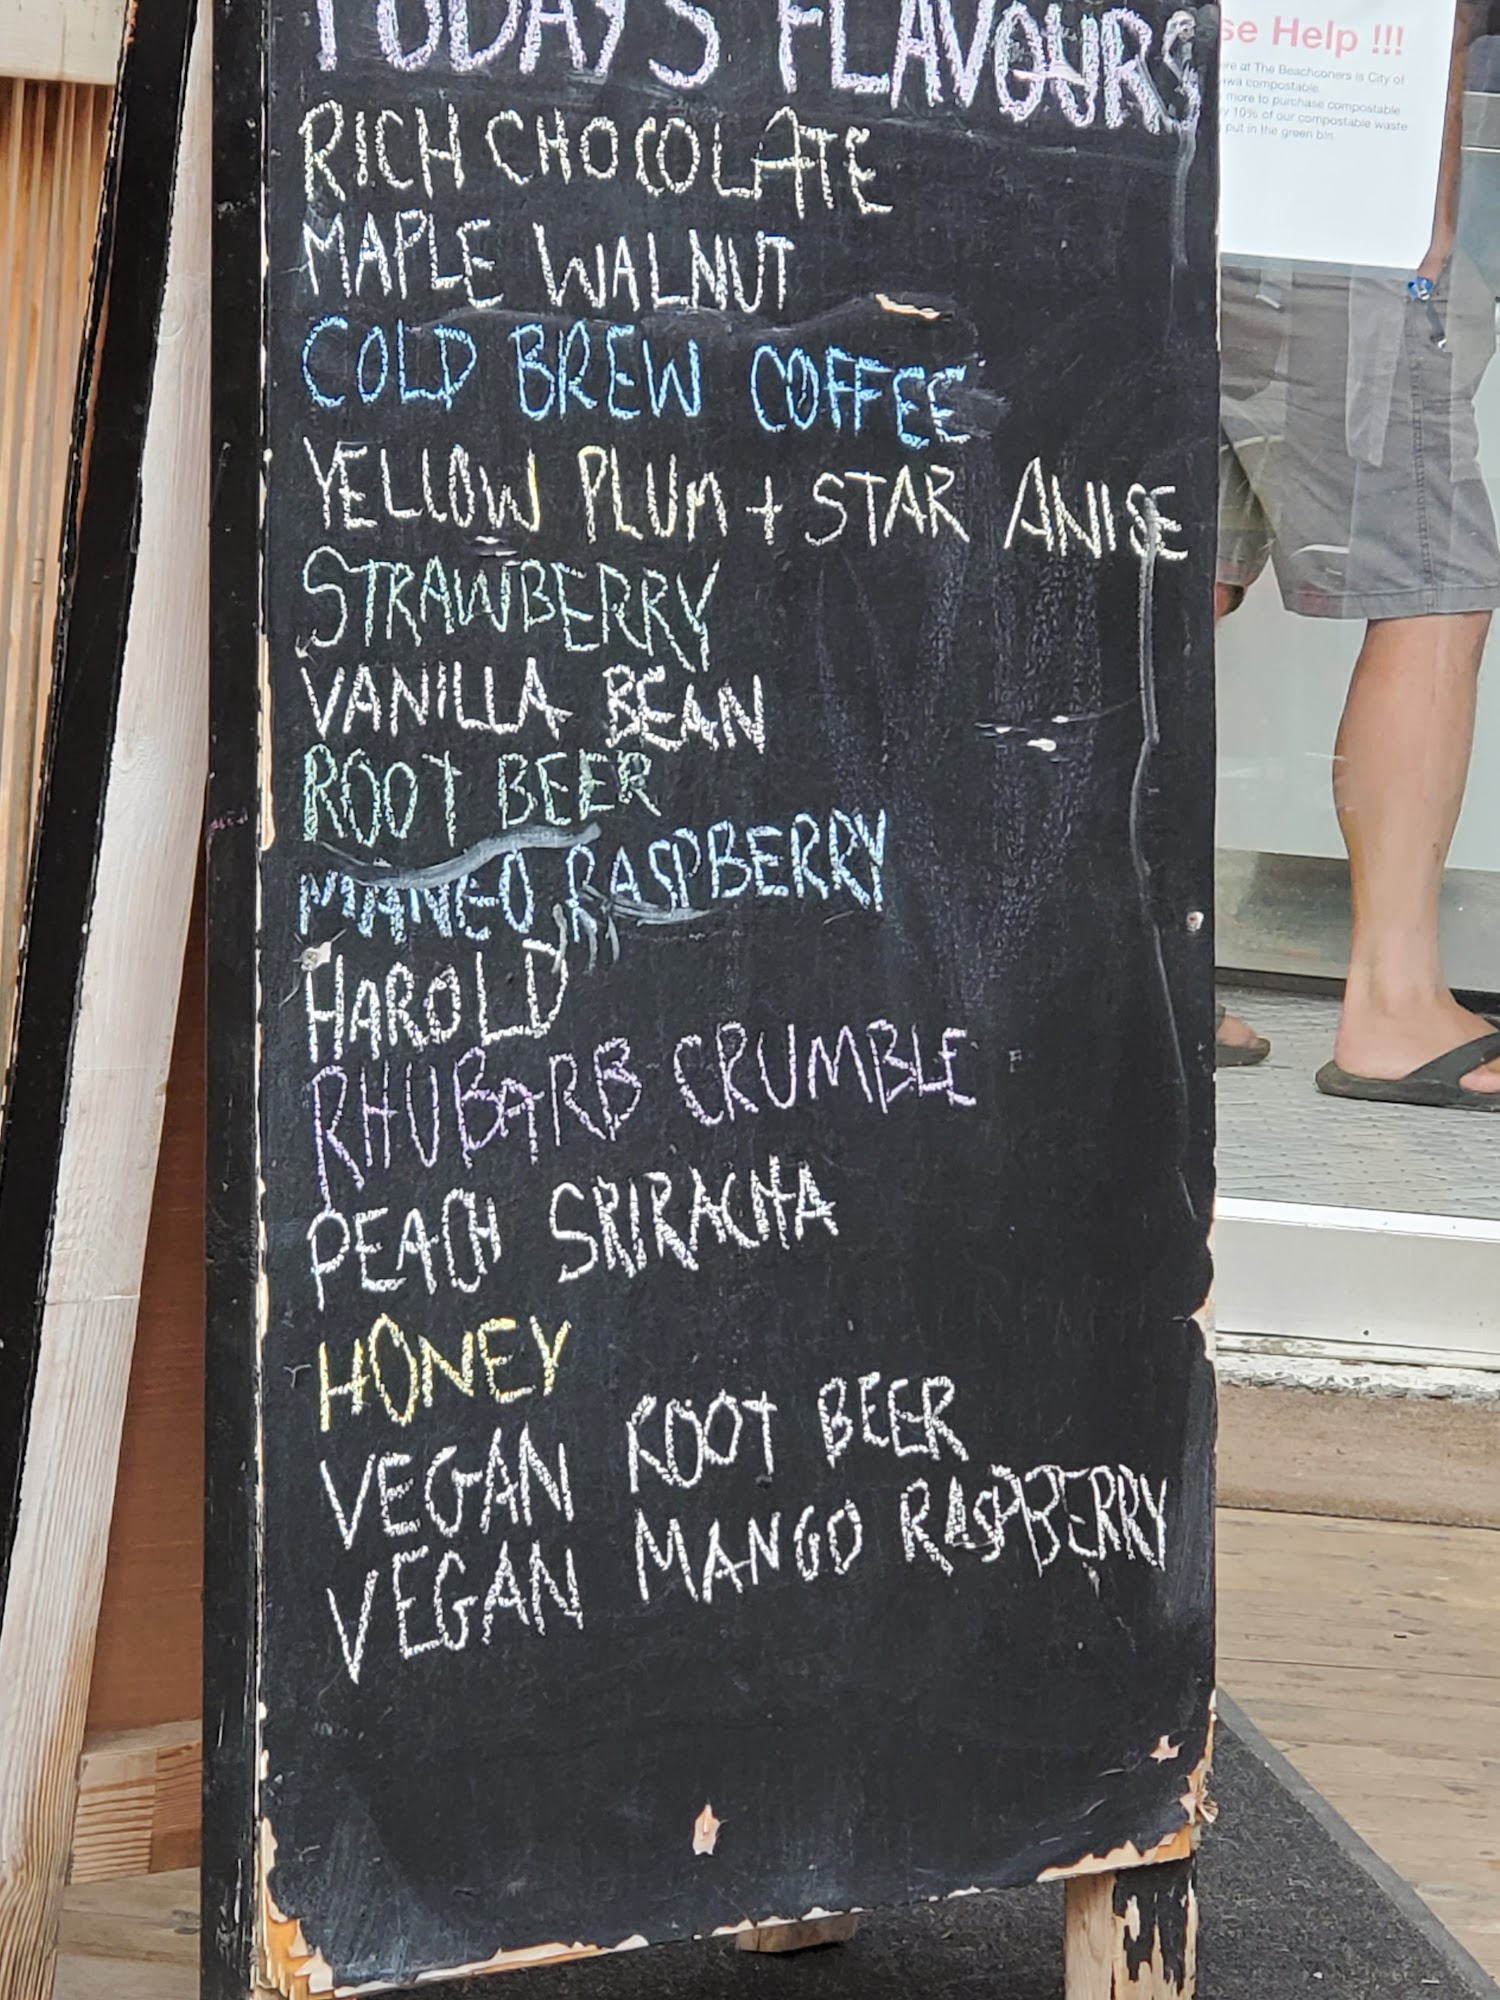 TODAY'S FLAVOURS
RICH CHOCOLATE
MAPLE WALNUT
COLD BREW COFFEE
YELLOW PLUM + STAR ANISE
STRAWBERRY
VANILLA BEAN
ROOT BEER
MANGO RASPBERRY
HAROLD
RHUBARB CRUMBLE
PEACH SRIRACHA
HONEY
VEGAN ROOT BEER
VEGAN MANGO RASPBERRY
se Help !!!
ere at The Beachconers is City of
awa compostable.
more to purchase compostable
y 10% of our compostable waste
put in the green bin.